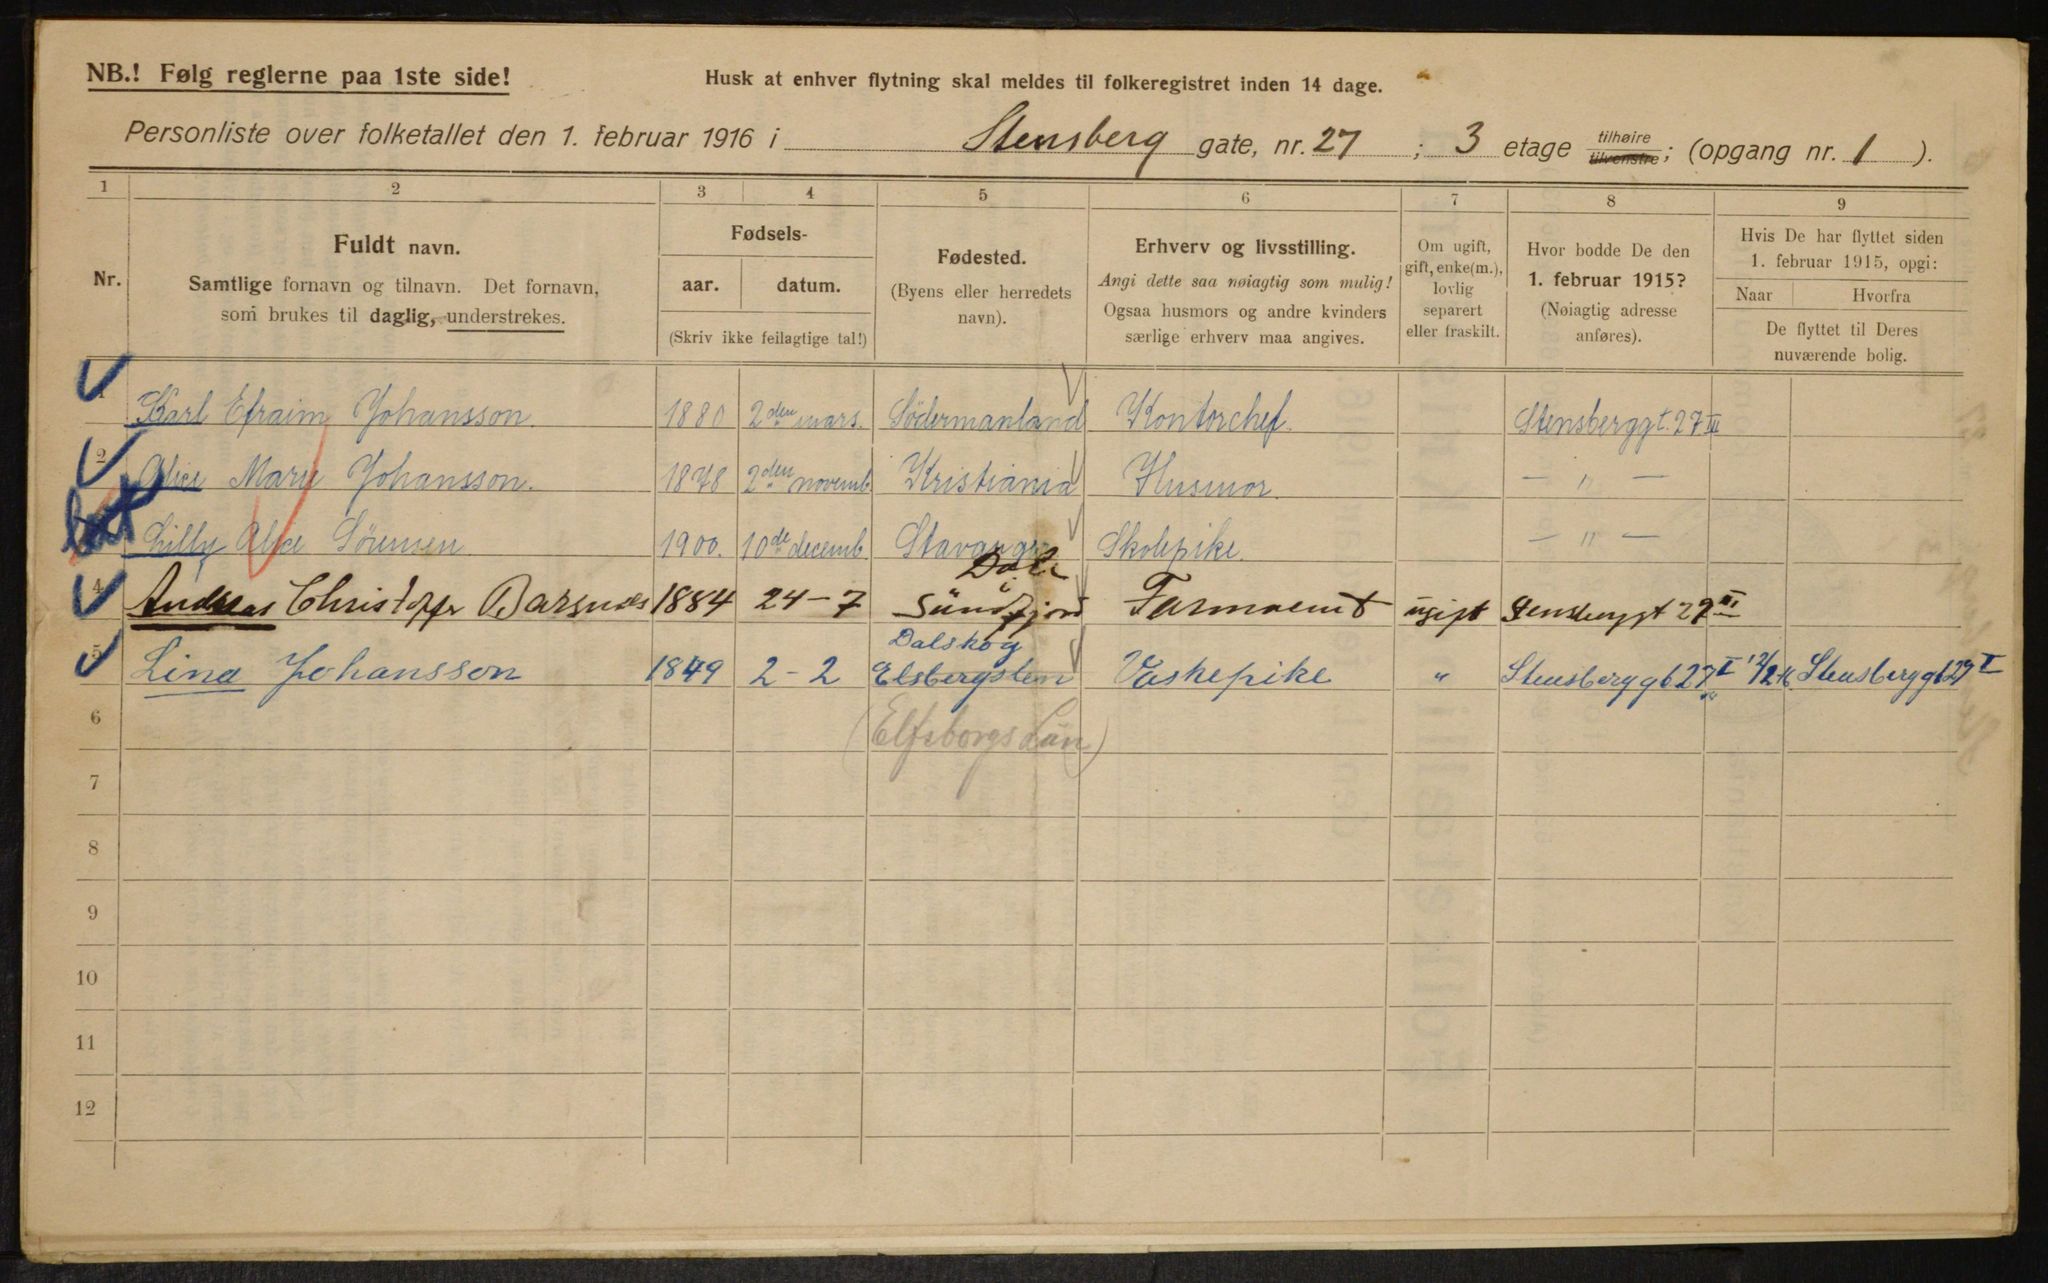 NB.! Følg reglerne paa 1ste side!
Husk at enhver flytning skal meldes til folkeregistret inden 14 dage.
Personliste over folketallet den 1. februar 1916 i Stensberg gate, nr. 27 ; 3 etage tilhøire tilvenstre; (opgang nr. 1 ).
1 2 3 4 5 6 7 8 9
Nr.
Fuldt navn.
Samtlige fornavn og tilnavn. Det fornavn,
som brukes til daglig, understrekes.
Fødsels-
aar. datum.
(Skriv ikke feilagtige tal!)
Fødested.
(Byens eller herredets
navn).
Erhverv og livsstilling.
Angi dette saa nøiagtig som mulig!
Ogsaa husmors og andre kvinders
særlige erhverv maa angives.
Om ugift,
gift, enke(m.),
lovlig
separert
eller fraskilt.
Hvor bodde De den
1. februar 1915?
(Nøiagtig adresse
anføres).
Hvis De har flyttet siden
1. februar 1915, opgi:
Naar Hvorfra
De flyttet til Deres
nuværende bolig.
1 Karl Efraim Johansson. 1880 2den mars. Södermanland Kontorchef. Stensberggt. 27 III
2 Alice Marie Johansson. 1878 2den novemb. Kristiania Husmor. — " —
Lilly Alice Sörensen 1900. 10de decemb. Stavanger Skolepike. — " —
4 Andreas Christoffer Barsnes 1884 24-7 Dale i Søndfjord ugift Stensberggt 27 III
5 Lina Johansson 1849 2-2 Dalskog Elsbergslen Vaskepike " Stensberggt 27 I Stensberggt 27 I
6 (Elfsborgs Län)
7
8
9
10
11
12